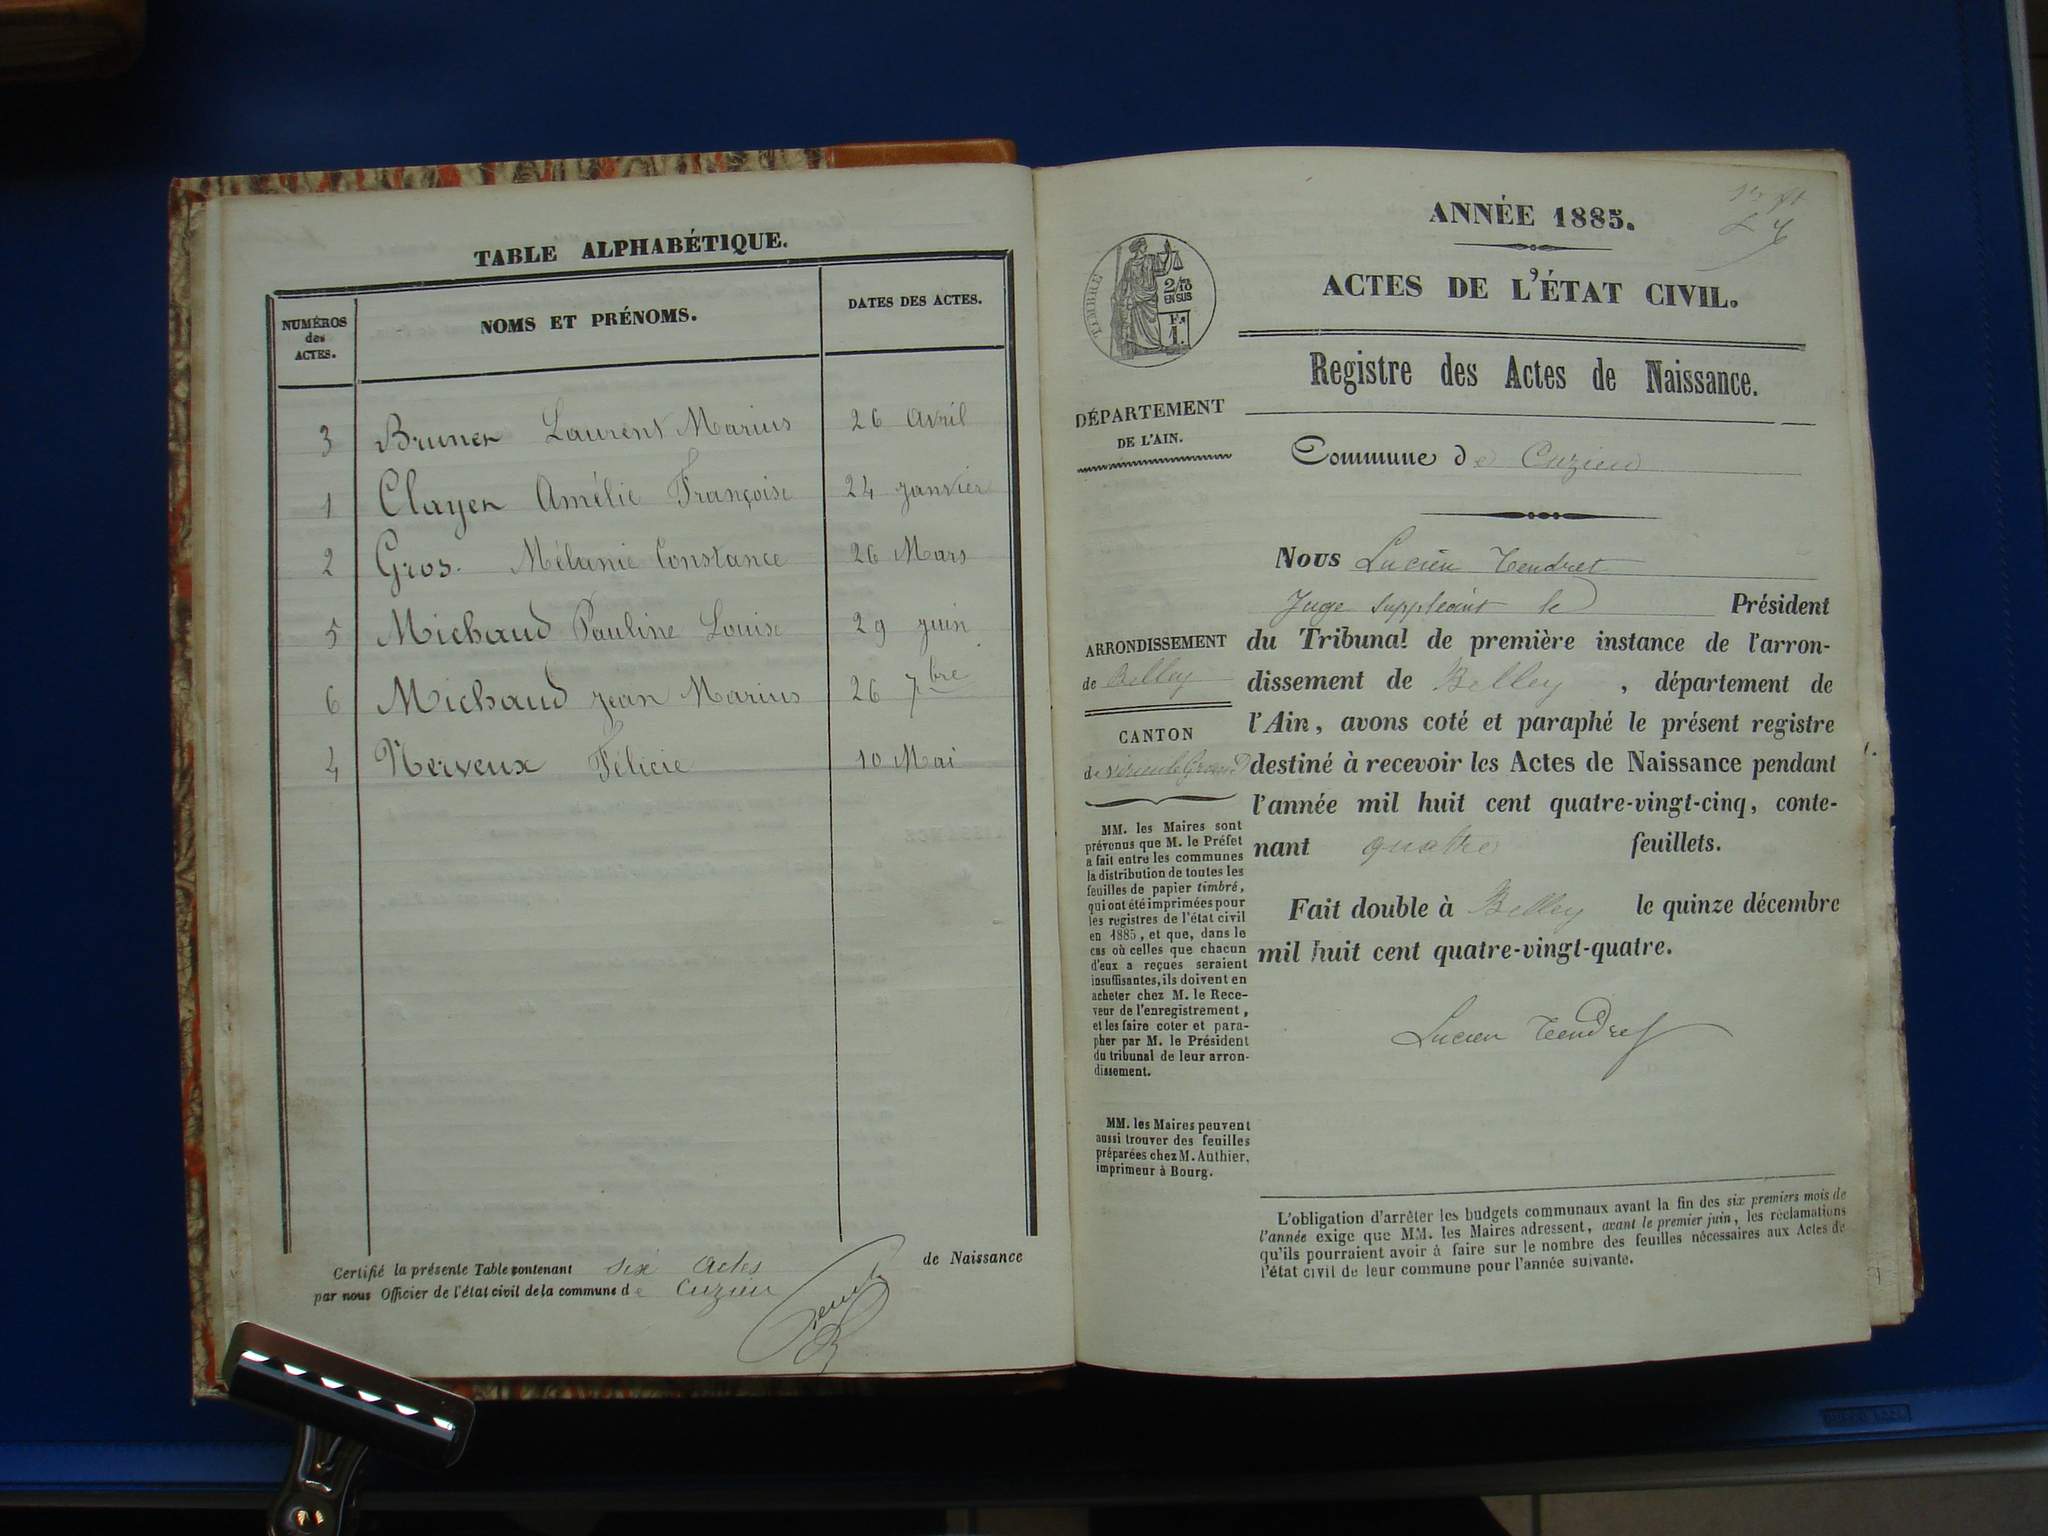 TABLE ALPHABÉTIQUE.
NUMÉROS
des
ACTES.
NOMS ET PRÉNOMS.
DATES DES ACTES.
3 Bruner Laurent Marius 26 Avril
1 Clayer Amélie Françoise 24 janvier
2 Gros. Mélanie Constance 26 Mars
5 Michaud Pauline Louise 29 juin
6 Michaud Jean Marius 26 7bre
4 Nerveux Félicie 10 Mai
Certifié la présente Table contenant six actes de Naissance
par nous Officier de l'état civil de la commune de Cuzieu
ANNÉE 1885.
ACTES DE L'ÉTAT CIVIL.
TIMBRE
2/10
EN SUS
Fr
1.
Registre des Actes de Naissance.
DÉPARTEMENT
DE L'AIN.
Commune de Cuzieu
Nous Lucien Tendret
Juge suppléant le Président
du Tribunal de première instance de l'arron-
dissement de Belley, département de
l'Ain, avons coté et paraphé le présent registre
destiné à recevoir les Actes de Naissance pendant
l'année mil huit cent quatre-vingt-cinq, conte-
nant quatre feuillets.
Fait double à Belley le quinze décembre
mil huit cent quatre-vingt-quatre.
Lucien Tendret
ARRONDISSEMENT
de Belley
CANTON
de Virieu le Grand
MM. les Maires sont
prévenus que M. le Préfet
a fait entre les communes
la distribution de toutes les
feuilles de papier timbré,
qui ont été imprimées pour
les registres de l'état civil
en 1885, et que, dans le
cas où celles que chacun
d'eux a reçues seraient
insuffisantes, ils doivent en
acheter chez M. le Rece-
veur de l'enregistrement,
et les faire coter et para-
pher par M. le Président
du tribunal de leur arron-
dissement.
MM. les Maires peuvent
aussi trouver des feuilles
préparées chez M. Authier,
imprimeur à Bourg.
L'obligation d'arrêter les budgets communaux avant la fin des six premiers mois de
l'année exige que MM. les Maires adressent, avant le premier juin, les réclamations
qu'ils pourraient avoir à faire sur le nombre des feuilles nécessaires aux Actes de
l'état civil de leur commune pour l'année suivante.